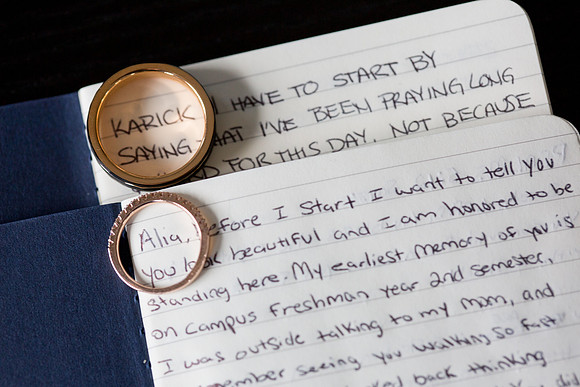 KARICK I HAVE TO START BY
SAYING THAT I'VE BEEN PRAYING LONG
FOR THIS DAY. NOT BECAUSE
Alia, Before I Start I want to tell you
you look beautiful and I am honored to be
standing here. My earliest memory of you is
on campus Freshman year 2nd semester,
I was outside talking to my mom, and
remember seeing you walking so fast
back thinking